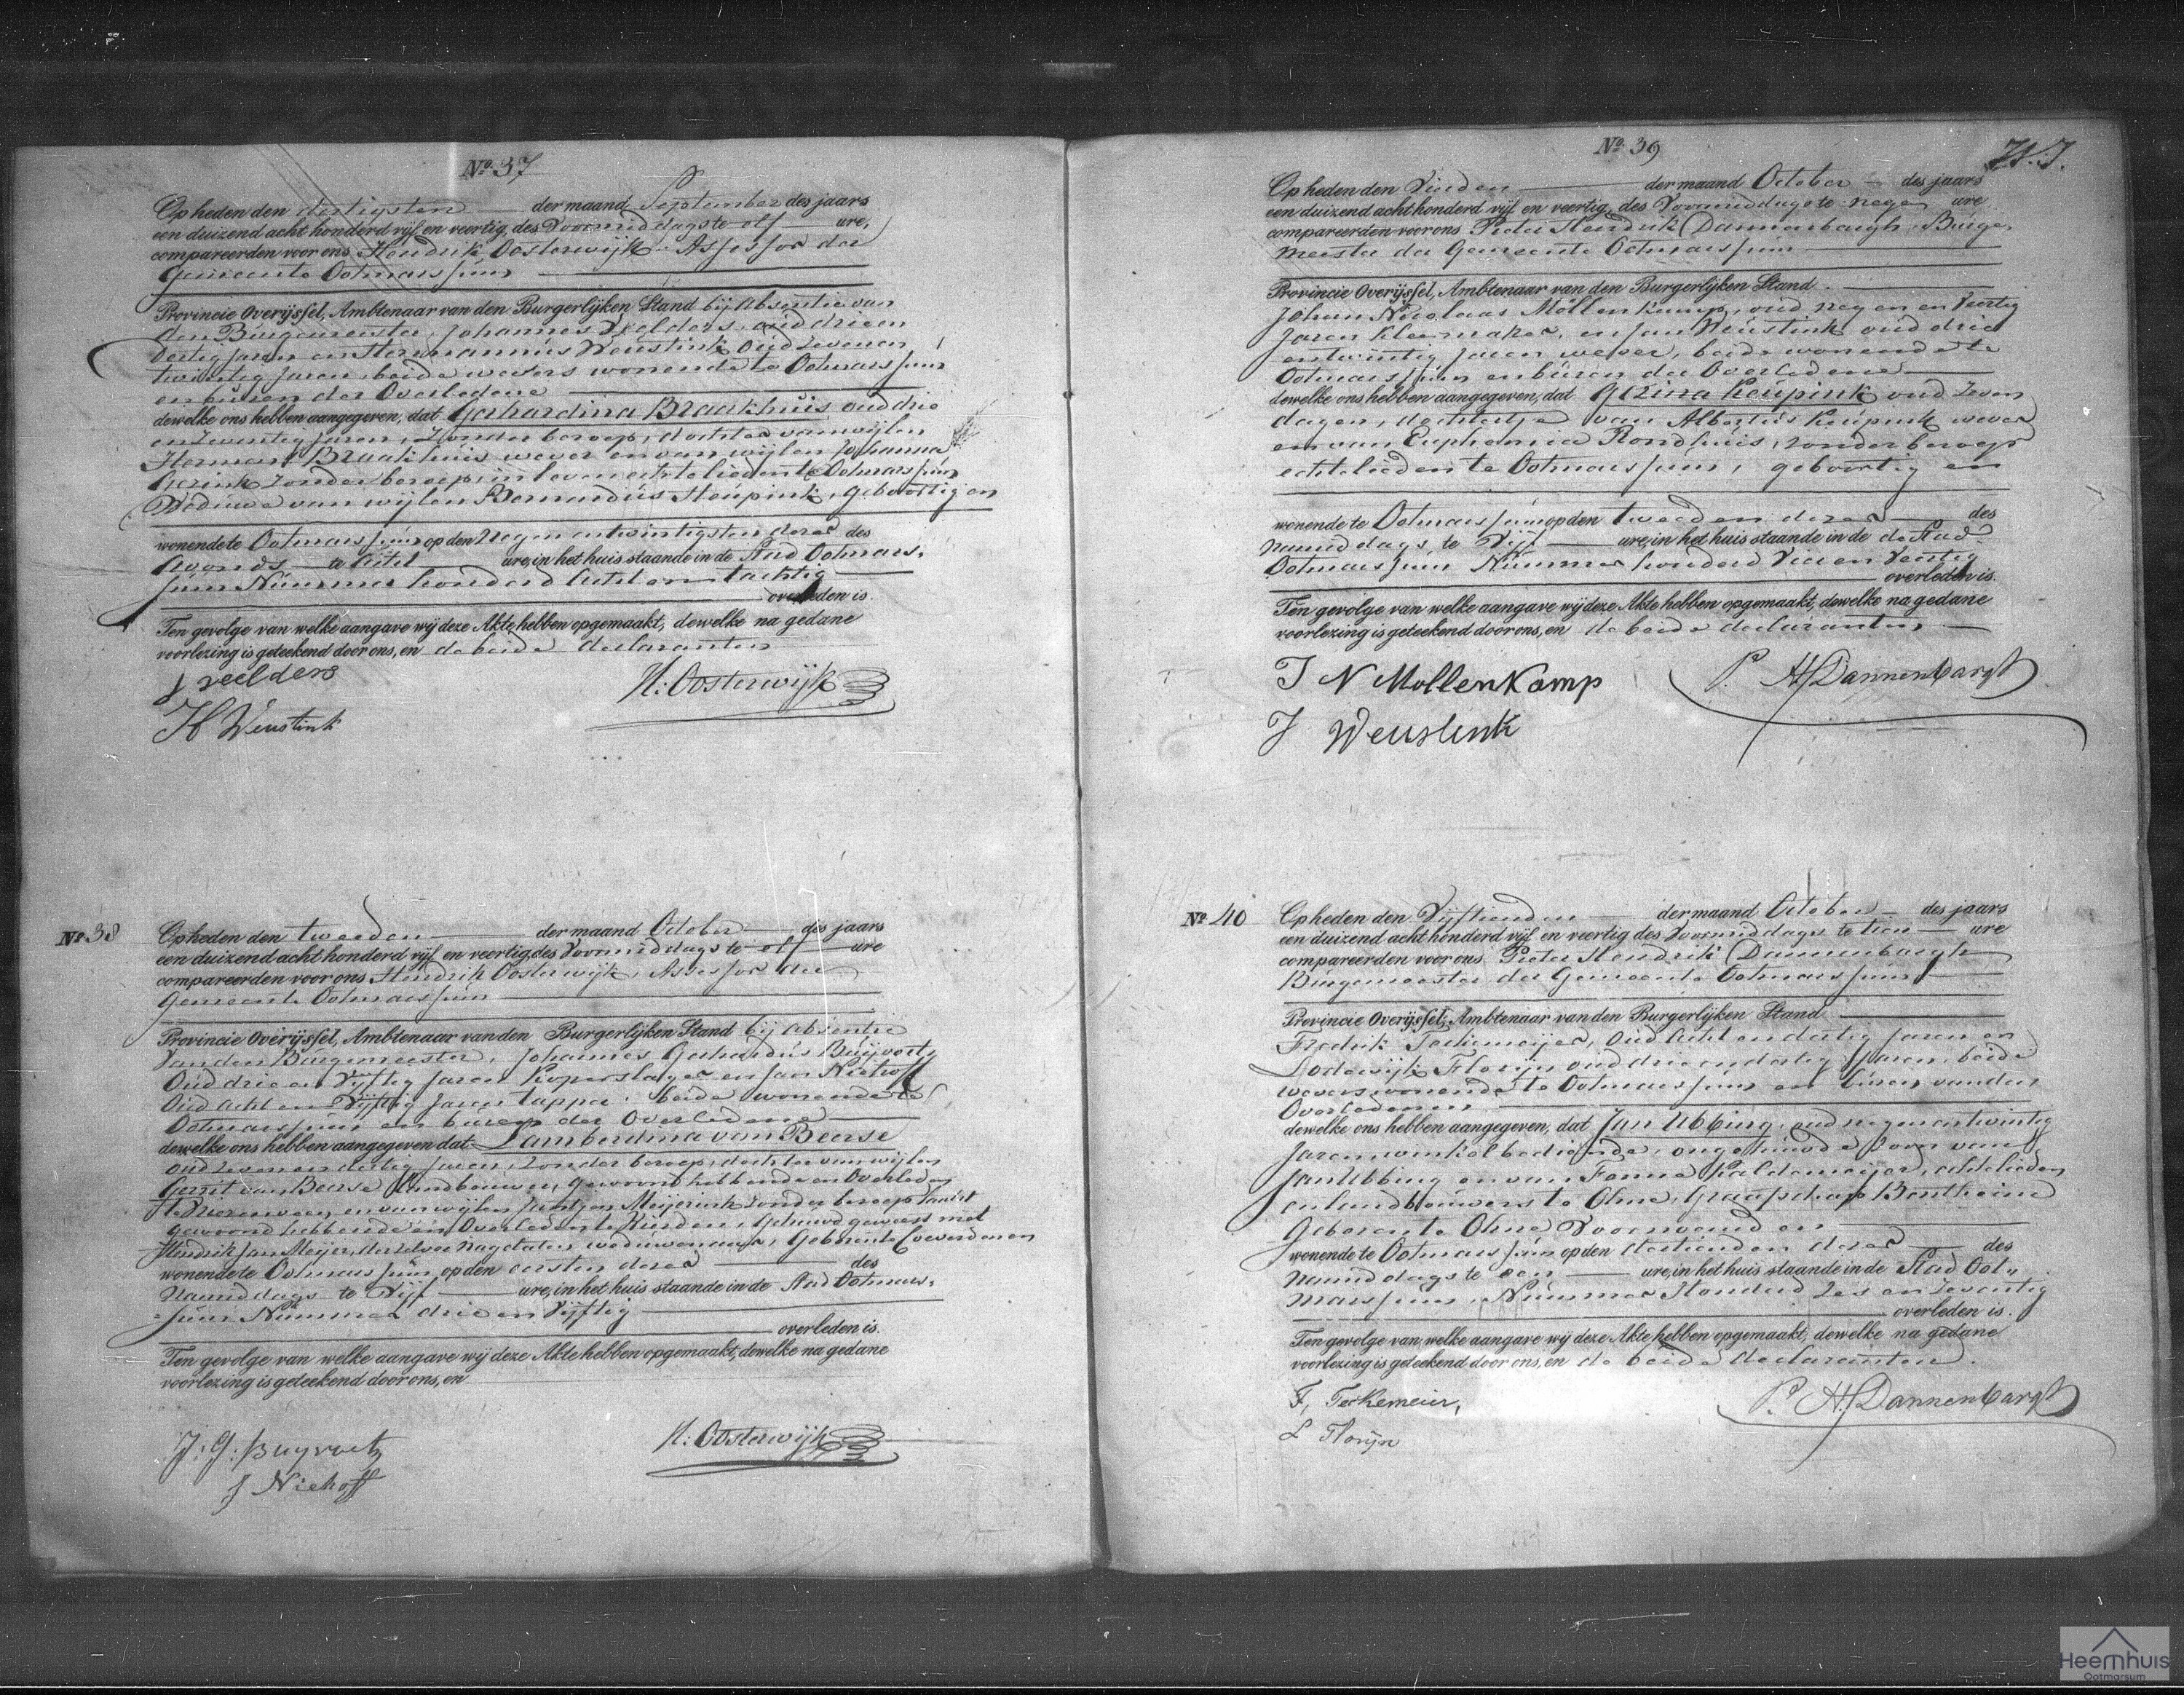 No. 37
Op heden den dertigsten der maand September des jaars
een duizend acht honderd vijf en veertig, des Voormiddags te elf ure,
compareerden voor ons Hendrik Oosterwijk Assessor der
Gemeente Ootmarssum
Provincie Overijssel, Ambtenaar van den Burgerlijken Stand bij absentie van
den Burgemeester, Johannes Veelders, oud drie en
dertig jaren en Hermannus Weustink oud zeven en
twintig jaren, beide wevers wonende te Ootmarssum
en buren der Overledene
dewelke ons hebben aangegeven, dat Gerhardina Braakhuis oud drie
en zeventig jaren, zonder beroep, dochter van wijlen
Herman Braakhuis wever en van wijlen Johanna
Gezink zonder beroep, in leven echtelieden te Ootmarssum
Weduwe van wijlen Bernardus Heupink, geboortig en
wonende te Ootmarssum op den Negen en twintigsten dezer des
Avonds te Acht ure, in het huis staande in de Stad Ootmars,
sum Nummer honderd acht en tachtig
overleden is.
Ten gevolge van welke aangave wij deze Akte hebben opgemaakt, dewelke na gedane
voorlezing is geteekend door ons, en de beide declaranten
J veelders
H: Oosterwijk
H Weustink
No. 38
Op heden den tweeden der maand October des jaars
een duizend acht honderd vijf en veertig, des Voormiddags te elf ure
compareerden voor ons Hendrik Oosterwijk, Assessor der
Gemeente Ootmarssum
Provincie Overijssel, Ambtenaar van den Burgerlijken Stand bij absentie
van den Burgemeester, Johannes Gerhardus Buijvoets
Oud drie en Vijftig jaren Koperslager en Jan Niehoff
Oud acht en Vijftig jaren tapper beide wonende te
Ootmarssum en buren der Overledene
dewelke ons hebben aangegeven dat Lamberdina van Beerse
oud zeven en dertig jaren, zonder beroep, dochter van wijlen
Gerrit van Beerse Landbouwer, gewoond hebbende en Overleden
te en van wijlen Jentjen Meijerink zonder beroep laatst
gewoond hebbende en Overleden te Rheden, Gehuwd geweest met
Hendrik Jan Meijer, derzelver nagelaten weduwenaar, Geboren te Coevorden en
wonende te Ootmarssum op den eersten dezer des
Namiddags te Vijf ure, in het huis staande in de Stad Ootmars,
sum Nummer drie en Vijftig
overleden is.
Ten gevolge van welke aangave wij deze Akte hebben opgemaakt, dewelke na gedane
voorlezing is geteekend door ons, en
J: G: Buyvoets
H: Oosterwijk
J Niehoff
No. 39
Op heden den Vierden der maand October des jaars
een duizend acht honderd vijf en veertig, des Voormiddags te negen ure
compareerden voor ons Pieter Hendrik Dannenbargh Burge,
meester der Gemeente Ootmarssum
Provincie Overijssel, Ambtenaar van den Burgerlijken Stand
Johan Nicolaas Möllenkamp, oud negen en Veertig
Jaren Kleermaker, en Jan Weustink oud drie
en twintig jaren wever, beide wonende te
Ootmarssum en buren der Overledene
dewelke ons hebben aangegeven, dat Gezina Keupink oud zeven
dagen, dochtertje van Albertus Keupink wever
en van Euphemia Rondhuis, zonder beroep
echtelieden te Ootmarssum, geboortig en
wonende te Ootmarssum op den tweeden dezer des
Namiddags te Vijf ure, in het huis staande in de de Stad
Ootmarssum Nummer honderd Vier en
overleden is.
Ten gevolge van welke aangave wij deze Akte hebben opgemaakt, dewelke na gedane
voorlezing is geteekend door ons, en de beide declaranten
J N Mollenkamp
P. H. Dannenbargh
J Weustink
No. 40
Op heden den Vijftienden der maand October des jaars
een duizend acht honderd vijf en veertig des Voormiddags te tien ure
compareerden voor ons Pieter Hendrik Dannenbargh
Burgemeester der Gemeente Ootmarssum
Provincie Overijssel, Ambtenaar van den Burgerlijken Stand
Fredrik Teekemeijer, Oud Acht en dertig jaren en
Lodewijk Florijn oud drie en dertig jaren, beide
wevers wonende te Ootmarssum en buren van den
Overledenen
dewelke ons hebben aangegeven, dat Jan Ubbing, oud negen en twintig
Jaren, winkelbediende, ongehuwde Zoon van
Jan Ubbing en van Fenne Paldemeijer, echtelieden
en landbouwers te Ohne, Graafschap Bentheim
Geboren te Ohne Voornoemd en
wonende te Ootmarssum op den dertienden dezer des
Namiddags te een ure, in het huis staande in de Stad Oot,
marssum, Nummer Honderd Zes en Zeventig
overleden is.
Ten gevolge van welke aangave wij deze Akte hebben opgemaakt, dewelke na gedane
voorlezing is geteekend door ons, en de beide declaranten.
F, Teekemeier,
P. H. Dannenbargh
L Florijn
Heemhuis
Ootmarsum